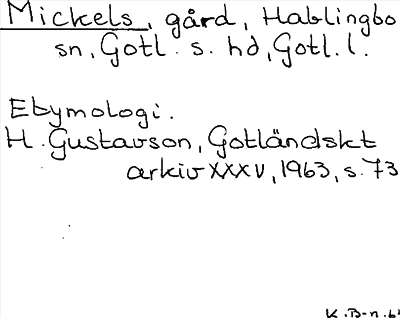 Mickels, gård, Hablingbo
sn, Gotl. s. hd, Gotl. l.
Etymologi.
H. Gustavson, Gotländskt
arkiv XXXV, 1963, s. 73
K. B-n. 64